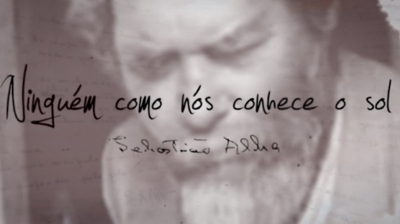 Ninguém como nós conhece o sol
Sebastião Alba